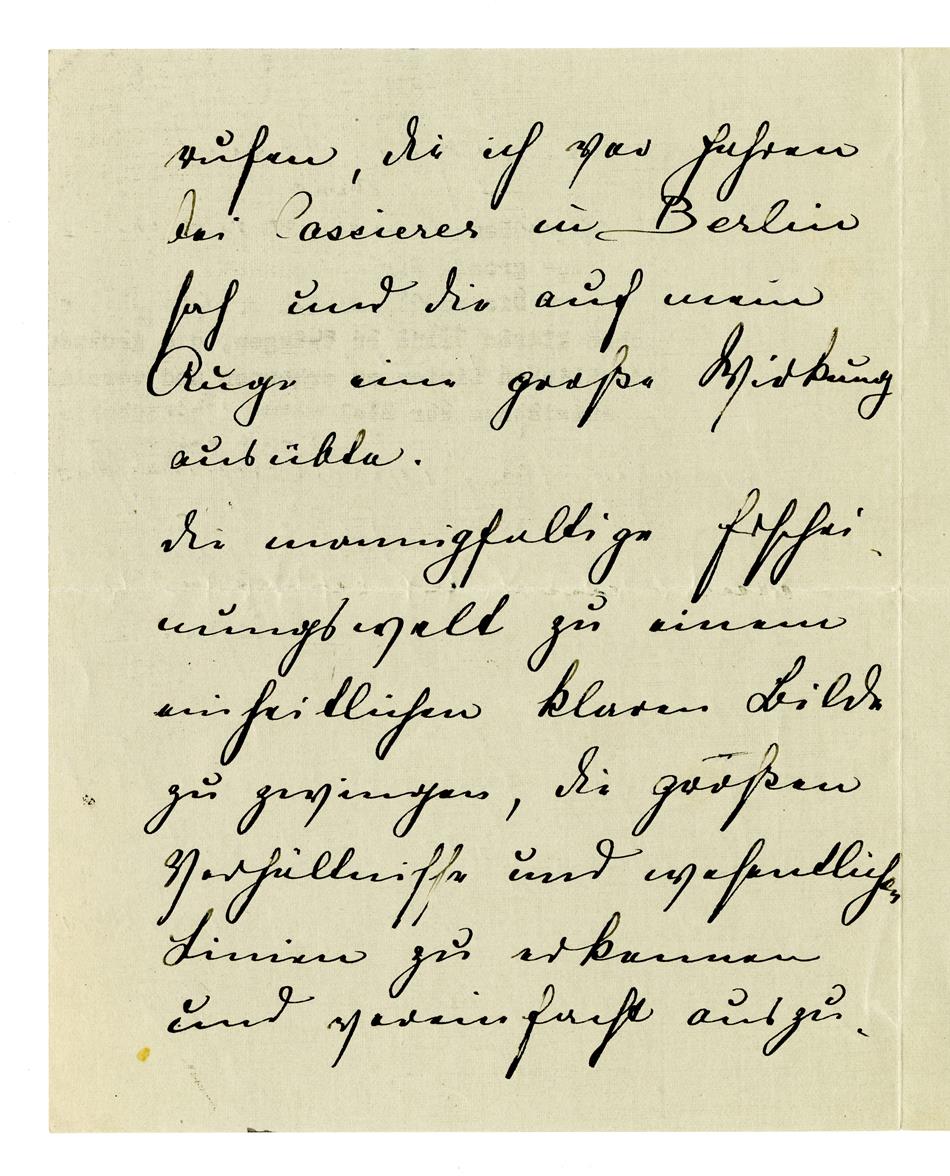 rufen, die ich vor Jahren
bei Cassierer in Berlin
sah und die auf mein
Auge eine große Wirkung
ausübte.
die mannigfaltige Erschei-
nungswelt zu einem
einheitlichen klaren Bilde
zu zwingen, die größen
Verhältnisse und wesentlichen
Linien zu erkennen
und vereinfacht auszu-